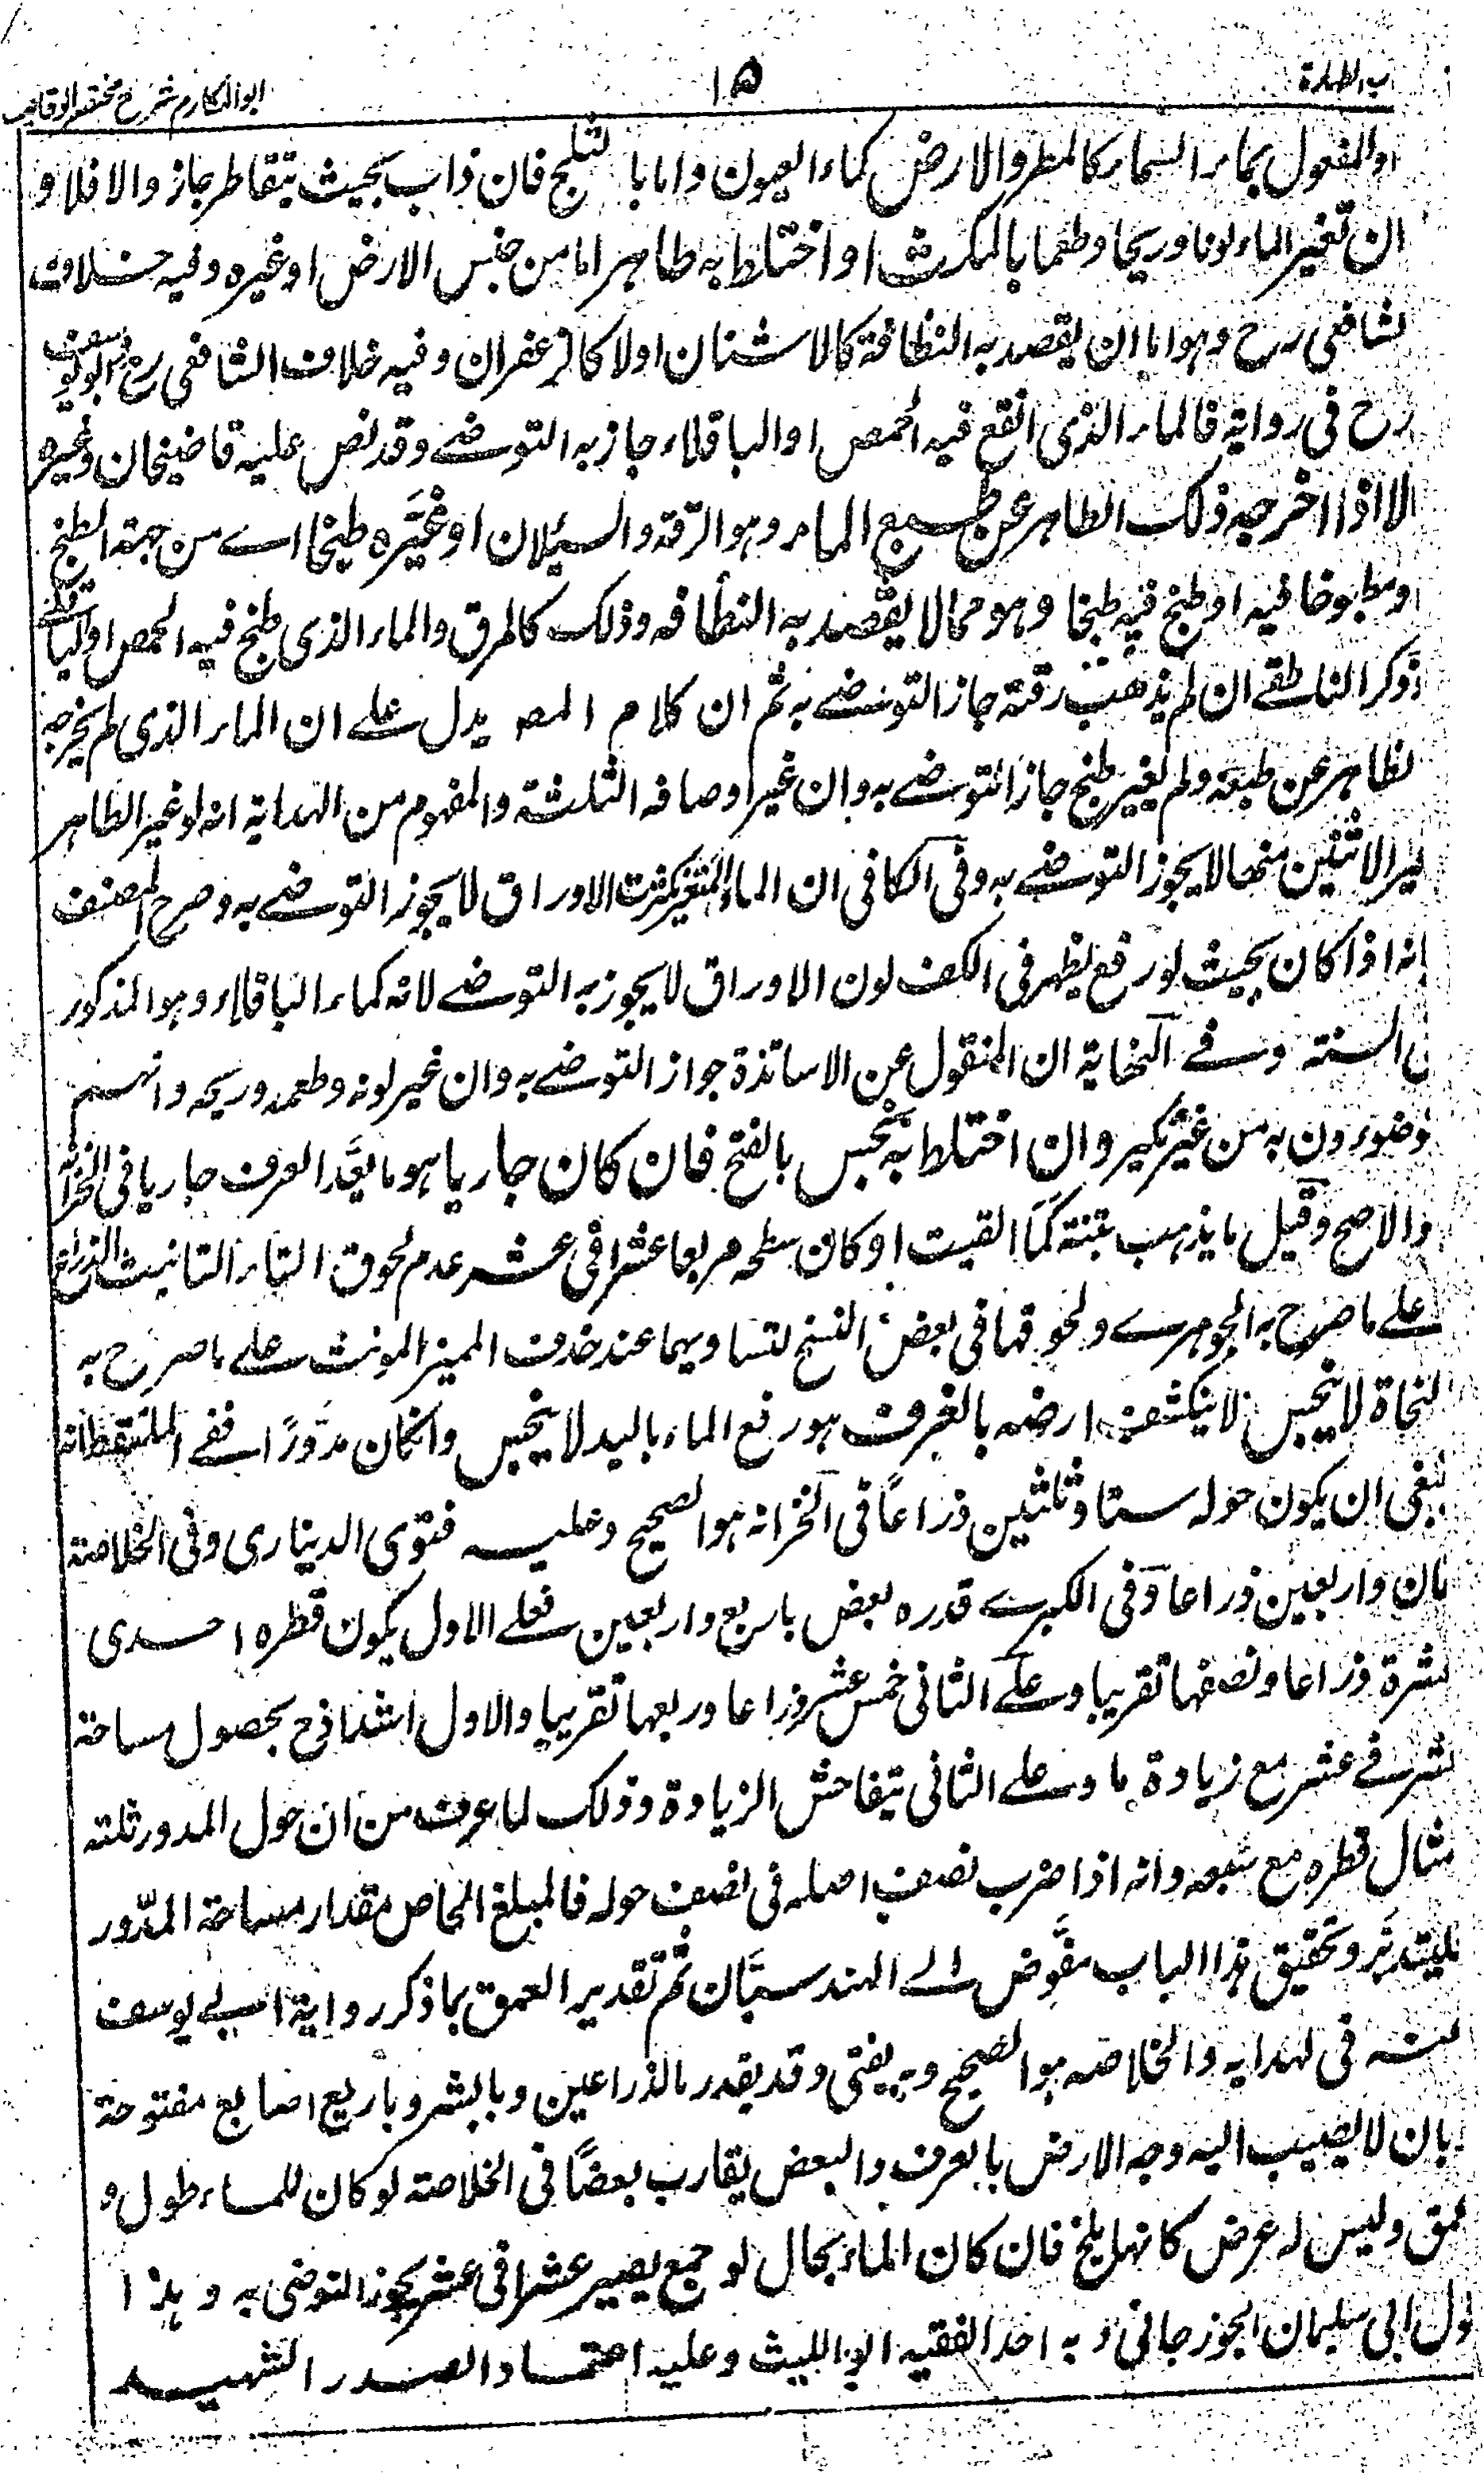 ب الطهارة ١٥ ابو المكارم شرح مختصر الوقايه
او المفعول بماء السماء كالمطر والارض كماء العيون واما بالثلج فان ذاب بحيث يتقاطر جاز والا فلا و
ان تغير الماء لونا وريحا وطعما بالمكث او اختلط به طاهر اما من جنس الارض او غيره وفيه خلاف
لشافعى رح وهو اما ان يقصد به النظافة كالاشنان اولا كالزعفران وفيه خلاف الشافعى رح وابو يوسف
رح فى رواية فالماء الذى انقع فيه الحمص او الباقلاء جاز به التوضے وقد نص عليه قاضيخان وغيره
الا اذا اخرجه ذلك الطاهر عن طبع الماء وهو الرقة والسيلان او غيّره طبخا اے من جهة الطبخ
او مطبوخا فيه او طبخ فيه طبخا وهو مما لا يقصد به النظافه وذلك كالمرق والماء الذى طبخ فيه الحمص او الباقلے
ذكر الناطقے ان لم يذهب رقته جاز التوضے به ثم ان كلام المص يدل علے ان الماء الذى لم يخرجه
لطاهر عن طبعه ولم يغير طبخ جاز التوضے به وان غير اوصافه الثلثة والمفهوم من الهداية انه لو غير الطاهر
لير الاثنين منها لا يجوز التوضے به وفى الكافى ان الماء المتغير بكثرت الاوراق لا يجوز التوضے به وصرح المصنف
انه اذا كان بحيث لو رفع يظهر فى الكف لون الاوراق لا يجوز به التوضے لانه كماء الباقلاء وهو المذكور
ى السنته وفے النهاية ان المنقول عن الاساتذة جواز التوضے به وان غير لونه وطعمه وريحه وانهم
توضوءون به من غير نكير وان اختلط به نجس بالفتح فان كان جاريا هو ما يعد العرف جاريا فى الخزانه
والاصح وقيل ما يذهب بتبنة كما القيت او كان سطحه مربعا عشرا فى عشر عدم لحوق التاء التانيث الذراع
علے ما صرح به الجوهرے ولحوقها فى بعض النسخ لتساويهما عند حذف المميز المونث علے ما صرح به
النحاة لا ينجس لا ينكشف ارضه بالغرف هو رفع الماء باليد لا ينجس وانكان مدورًا ففے الملتقط انه
ينبغى ان يكون حوله ستا وثلثين ذراعًا فى الخزانه هو الصحيح وعليه فتوى الدينارى وفى الخلاصة
ثمان واربعين ذراعا وفى الكبرے قدره بعض باربع واربعين فعلے الاول يكون قطره احدى
عشرة ذراعا ونصفها تقريبا وعلے الثانى خمس عشر ذراعا وربعها تقريبا والاول اشد اذ ح بحصول مساحة
عشر فے عشر مع زيادة ما وعلے الثانى يتفاحش الزيادة وذلك لما عرف من ان حول المدور ثلثه
مثال قطره مع سبعه وانه اذا ضرب نصف اصله فى نصف حوله فالمبلغ الحاص مقدار مساحة المدّور
فليتدبر وتحقيق هذا الباب مفوّض الے المهندس ثم تقدير العمق بما ذكر رواية ابے يوسف
عنه فى لهدايه والخلاصه هو الصحيح وبه يفتى وقد يقدر بالذراعين وبالشبر وباربع اصابع مفتوحة
بان لا يصيب اليه وجه الارض بالعرف والبعض يقارب بعضًا فى الخلاصة لو كان للماء طول و
عمق وليس له عرض كانهار بلخ فان كان الماء بحال لو جمع يصير عشرا فى عشر يجوز التوضى به وهذا
قول ابى سليمان الجوزجانى و به اخذ الفقيه ابو الليث وعليه اعتماد الصدر الشهيد